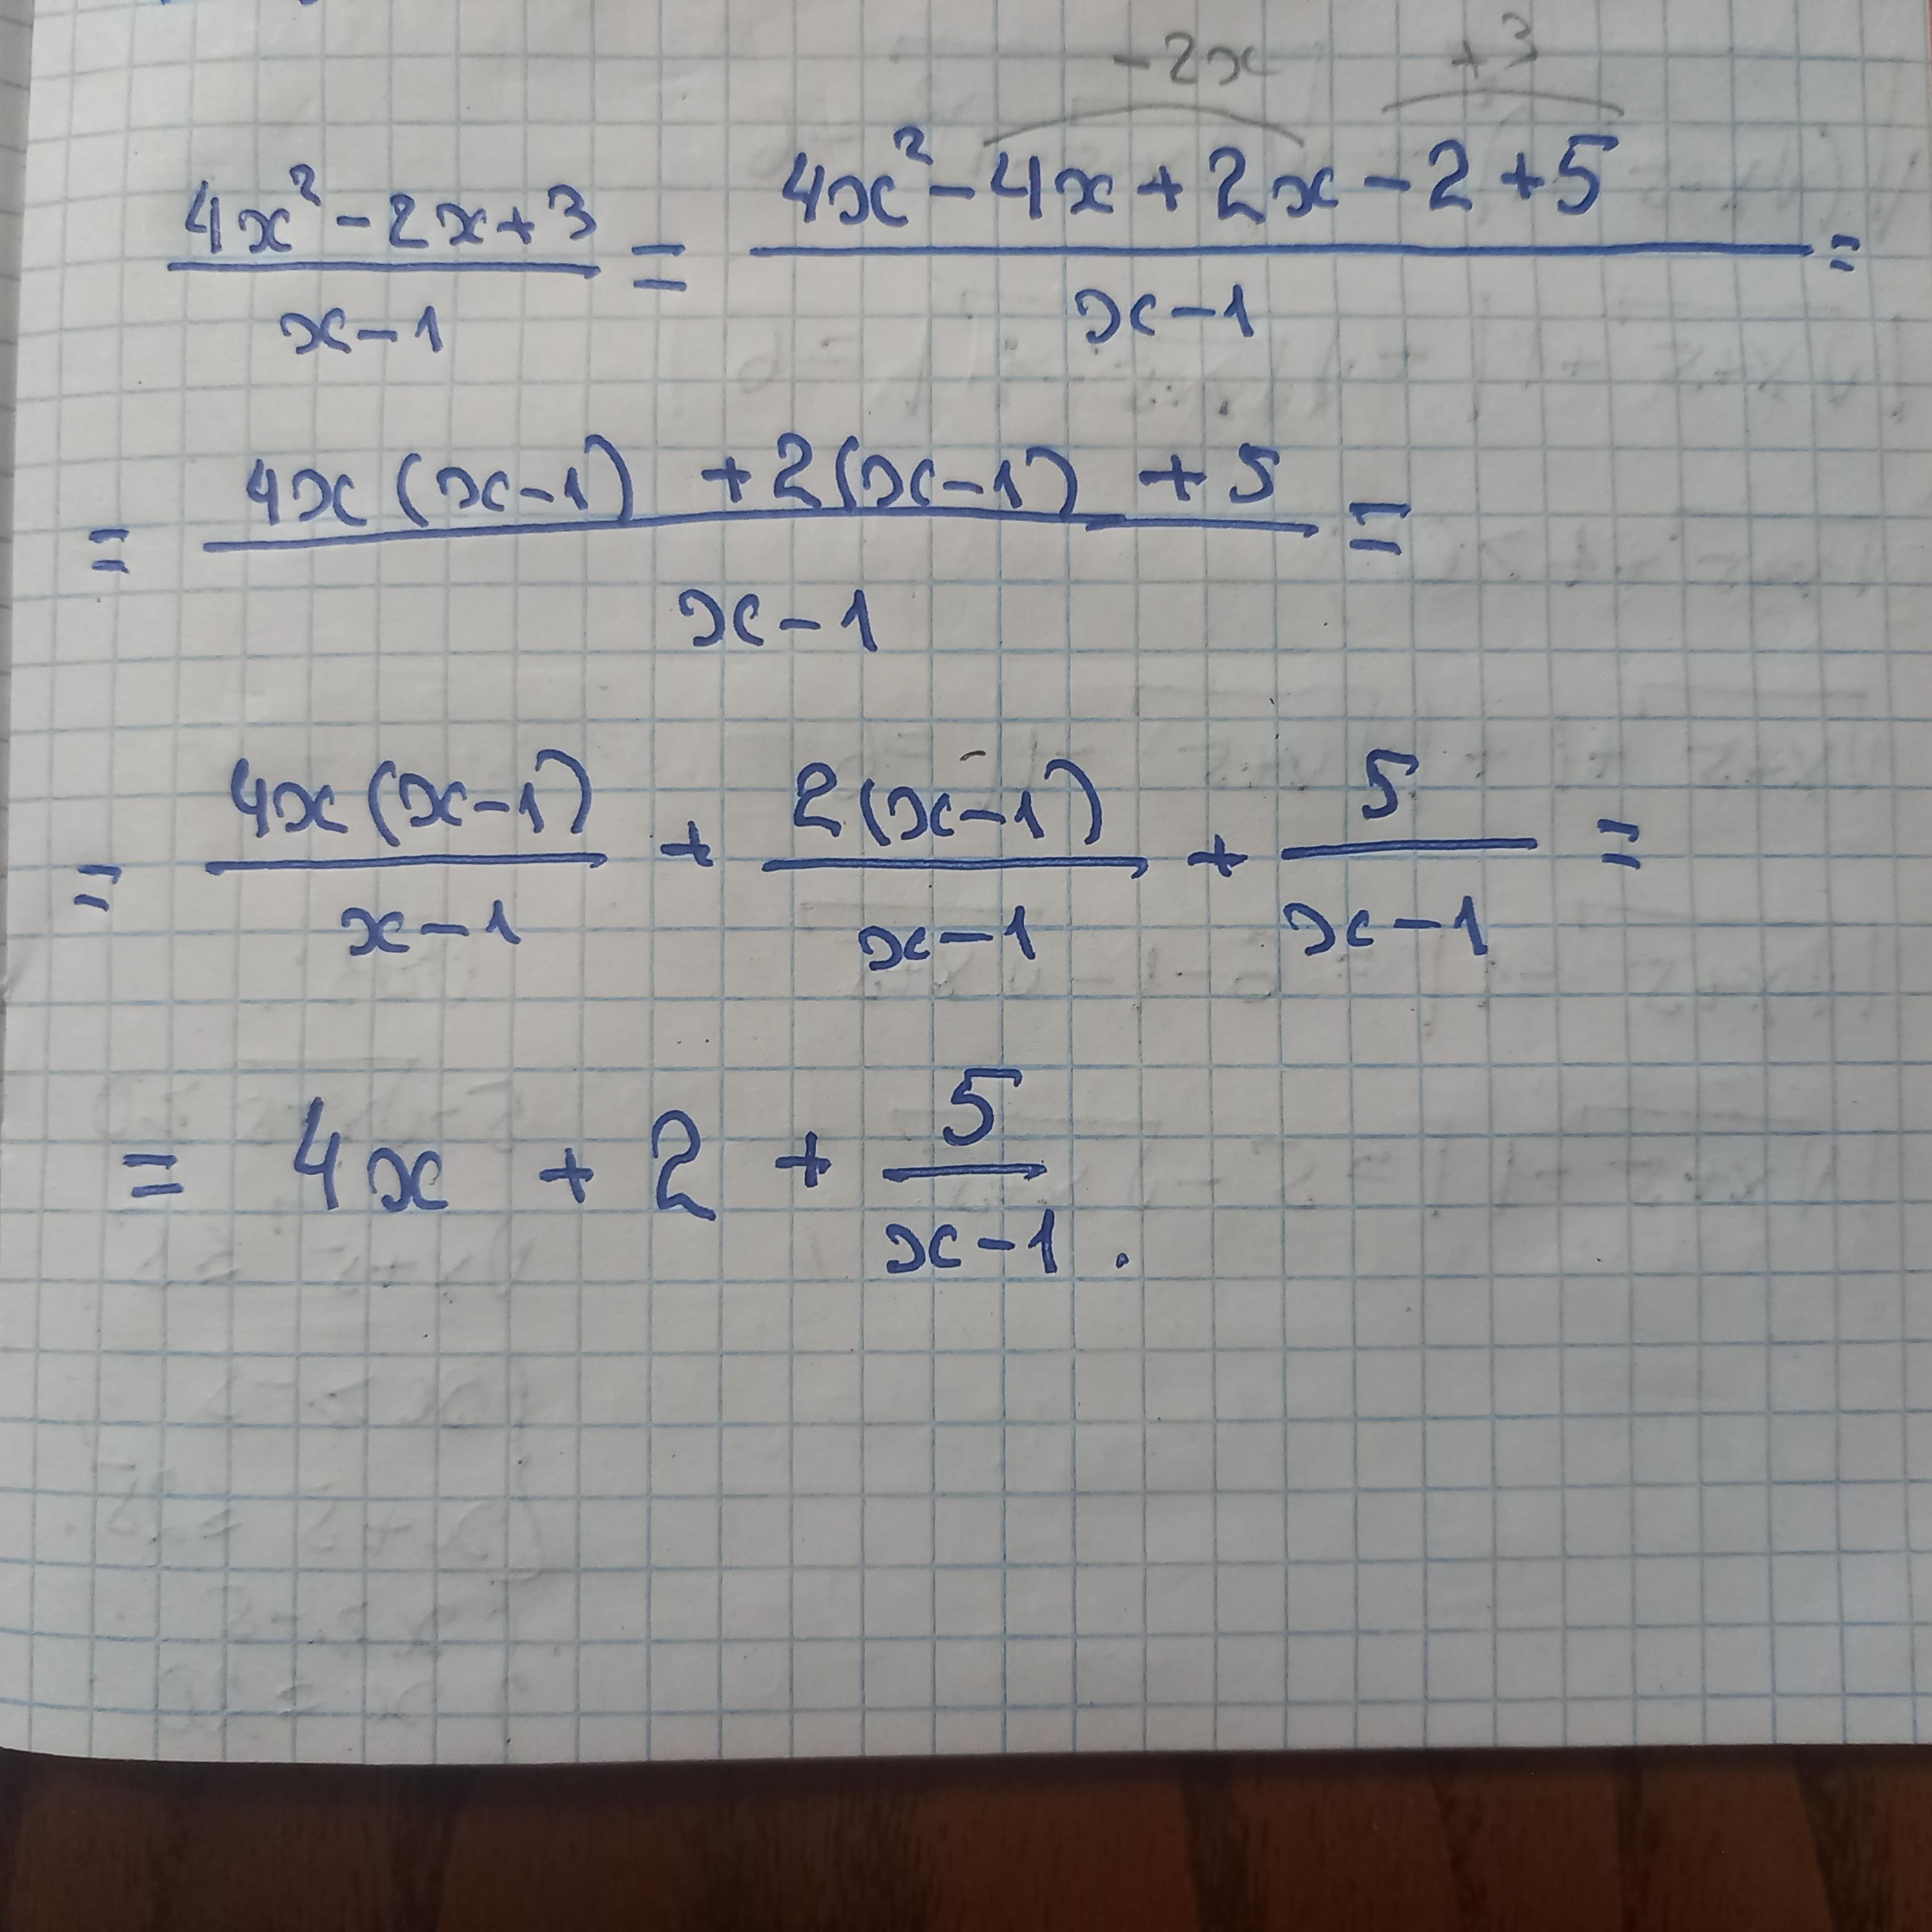 -2x +3
4x² - 2x + 3 / x - 1 = 4x² - 4x + 2x - 2 + 5 / x - 1 =
= 4x(x-1) + 2(x-1) + 5 / x - 1 =
= 4x(x-1) / x - 1 + 2(x-1) / x - 1 + 5 / x - 1 =
= 4x + 2 + 5 / x - 1 .